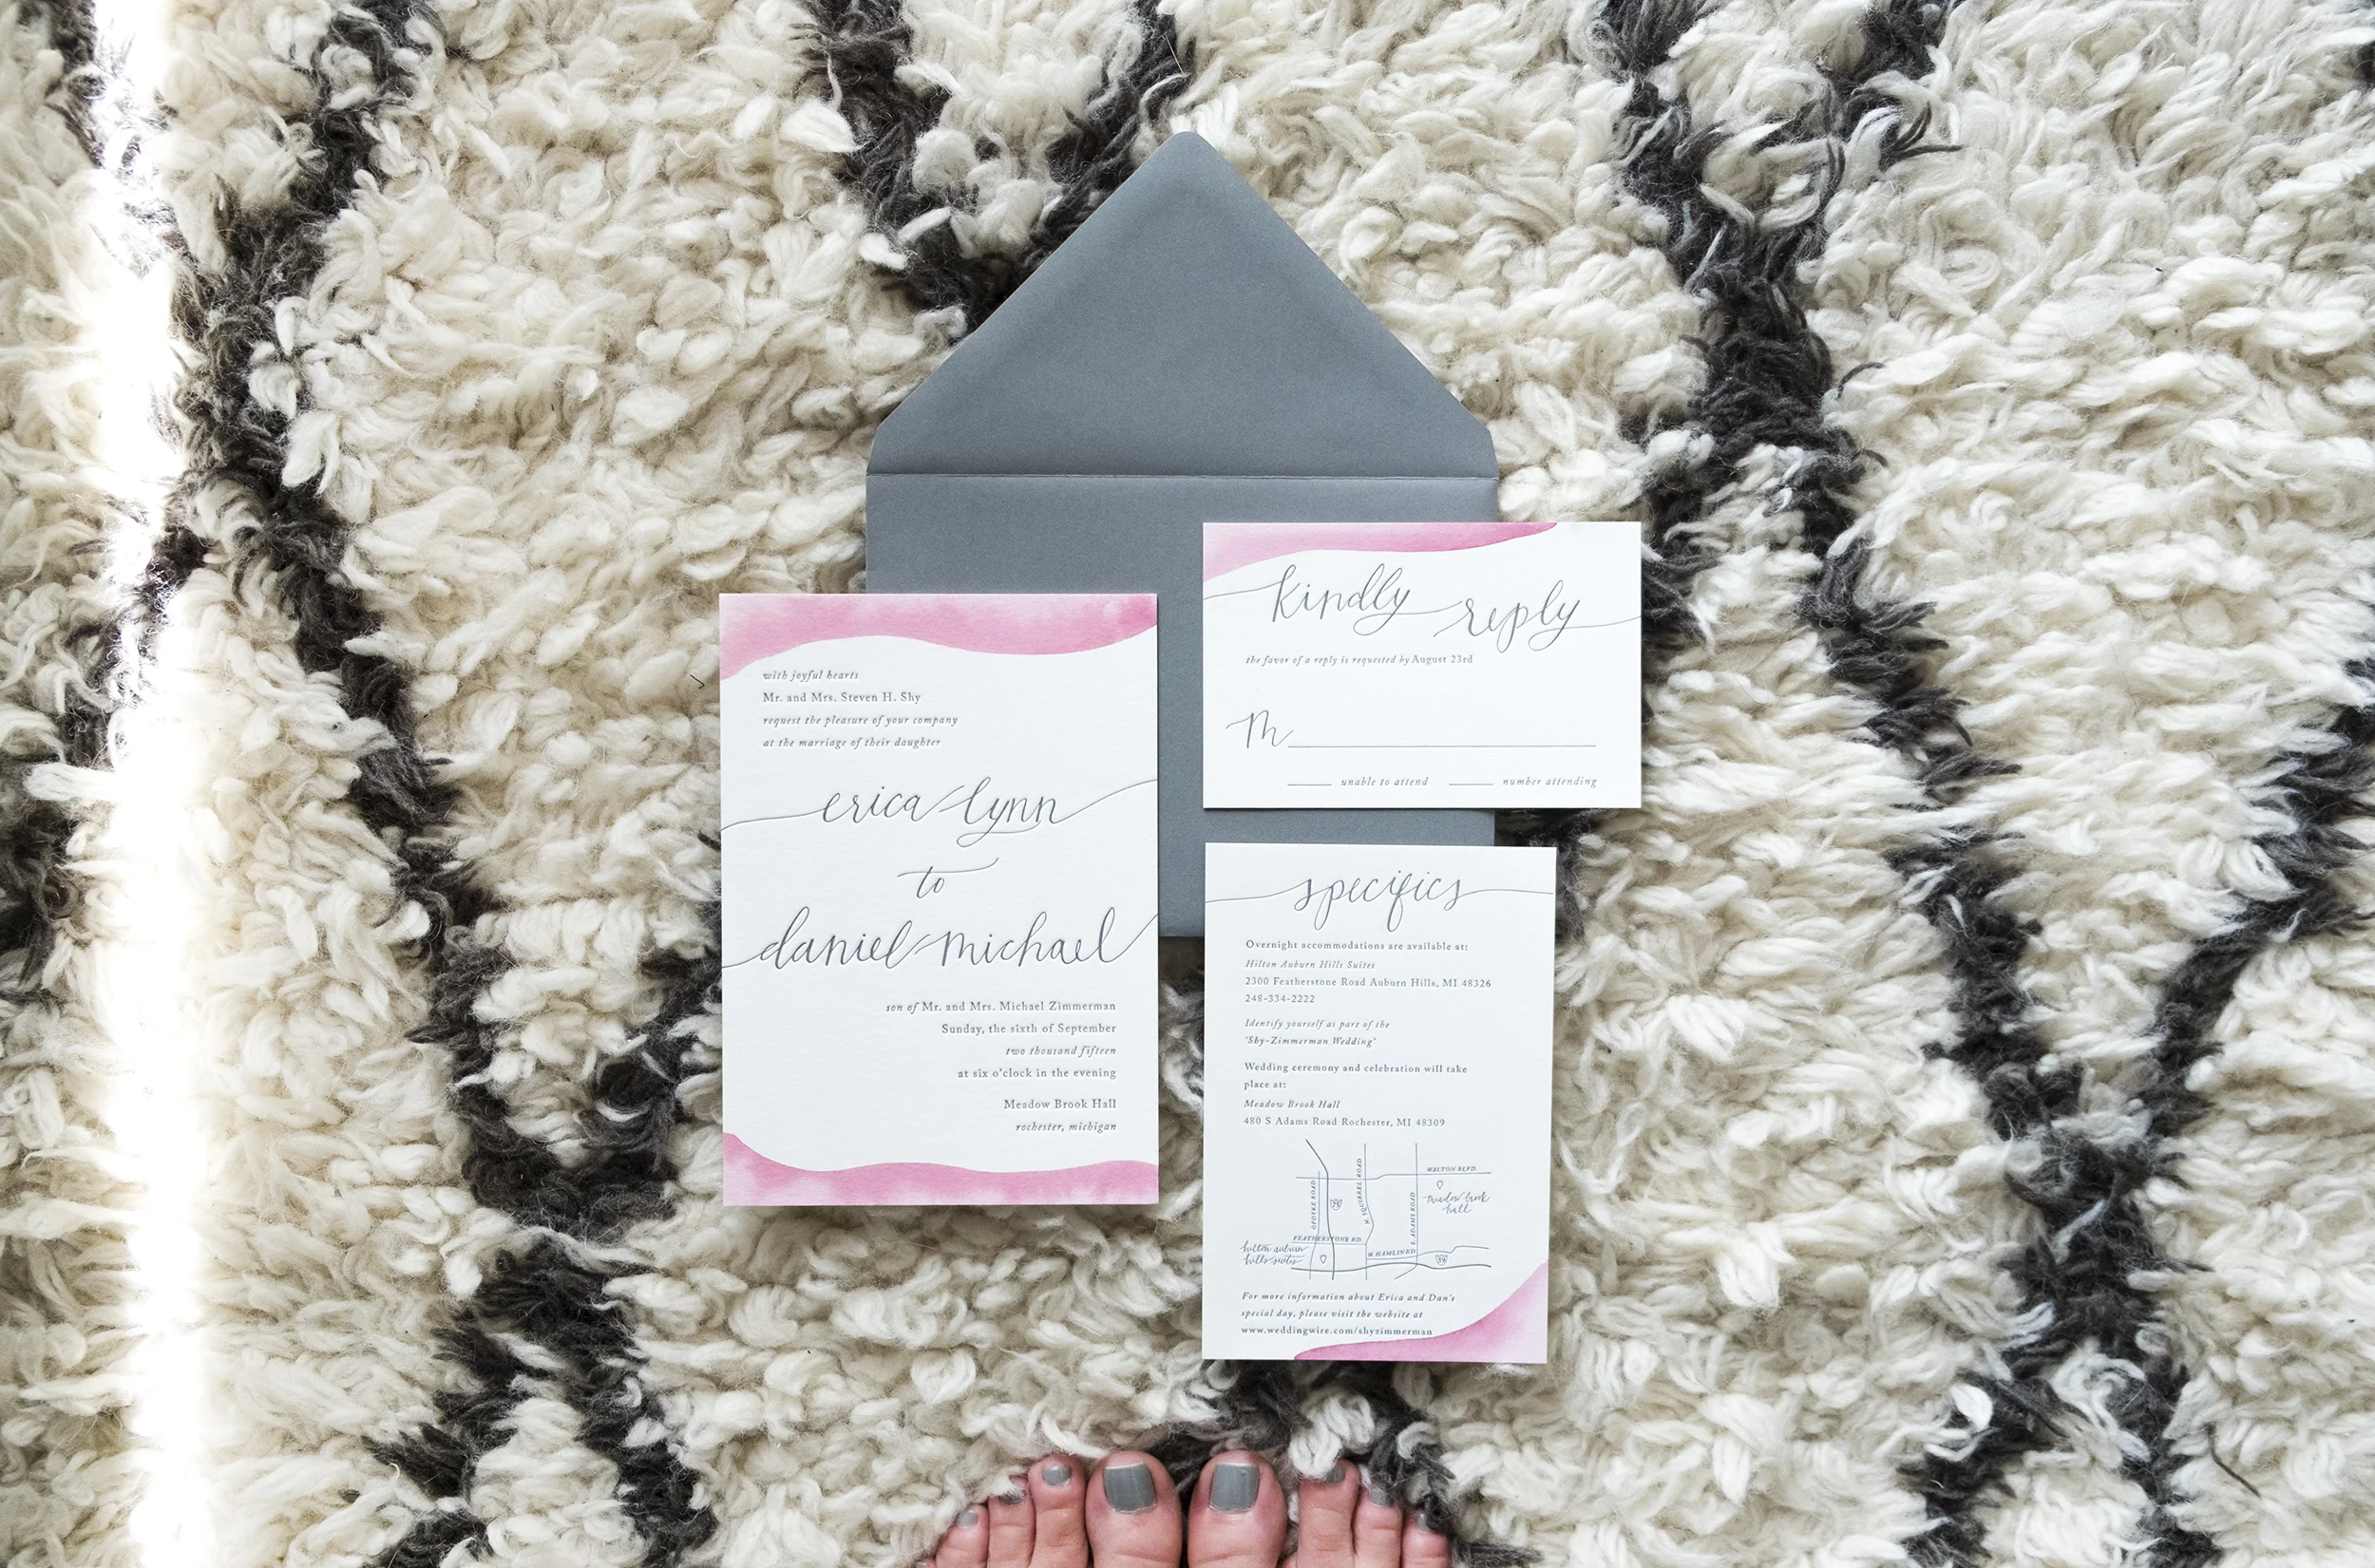 with joyful hearts
Mr. and Mrs. Steven H. Shy
request the pleasure of your company
at the marriage of their daughter
erica lynn
to
daniel michael
son of Mr. and Mrs. Michael Zimmerman
Sunday, the sixth of September
two thousand fifteen
at six o'clock in the evening
Meadow Brook Hall
rochester, michigan
kindly reply
the favor of a reply is requested by August 23rd
M
unable to attend
number attending
specifics
Overnight accommodations are available at:
Hilton Auburn Hills Suites
2300 Featherstone Road Auburn Hills, MI 48326
248-334-2222
Identify yourself as part of the
'Shy-Zimmerman Wedding'
Wedding ceremony and celebration will take
place at:
Meadow Brook Hall
480 S Adams Road Rochester, MI 48309
WALTON BLVD.
meadow brook
hall
OPDYKE ROAD
75
N. SQUIRREL ROAD
S. ADAMS ROAD
FEATHERSTONE RD.
hilton auburn
hills suites
W. HAMLIN RD.
59
For more information about Erica and Dan's
special day, please visit the website at
www.weddingwire.com/shyzimmerman